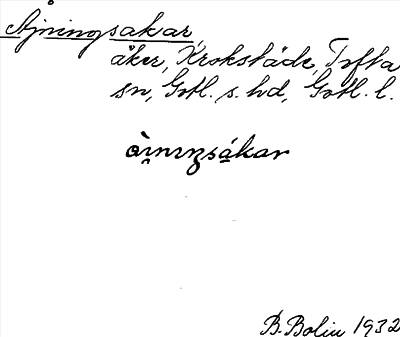 Åjningsakar,
åker, Krokstäde, Tofta
sn, Gotl. s. hd, Gotl. l.
ài̯nɪŋsákar
B. Bolin 1932